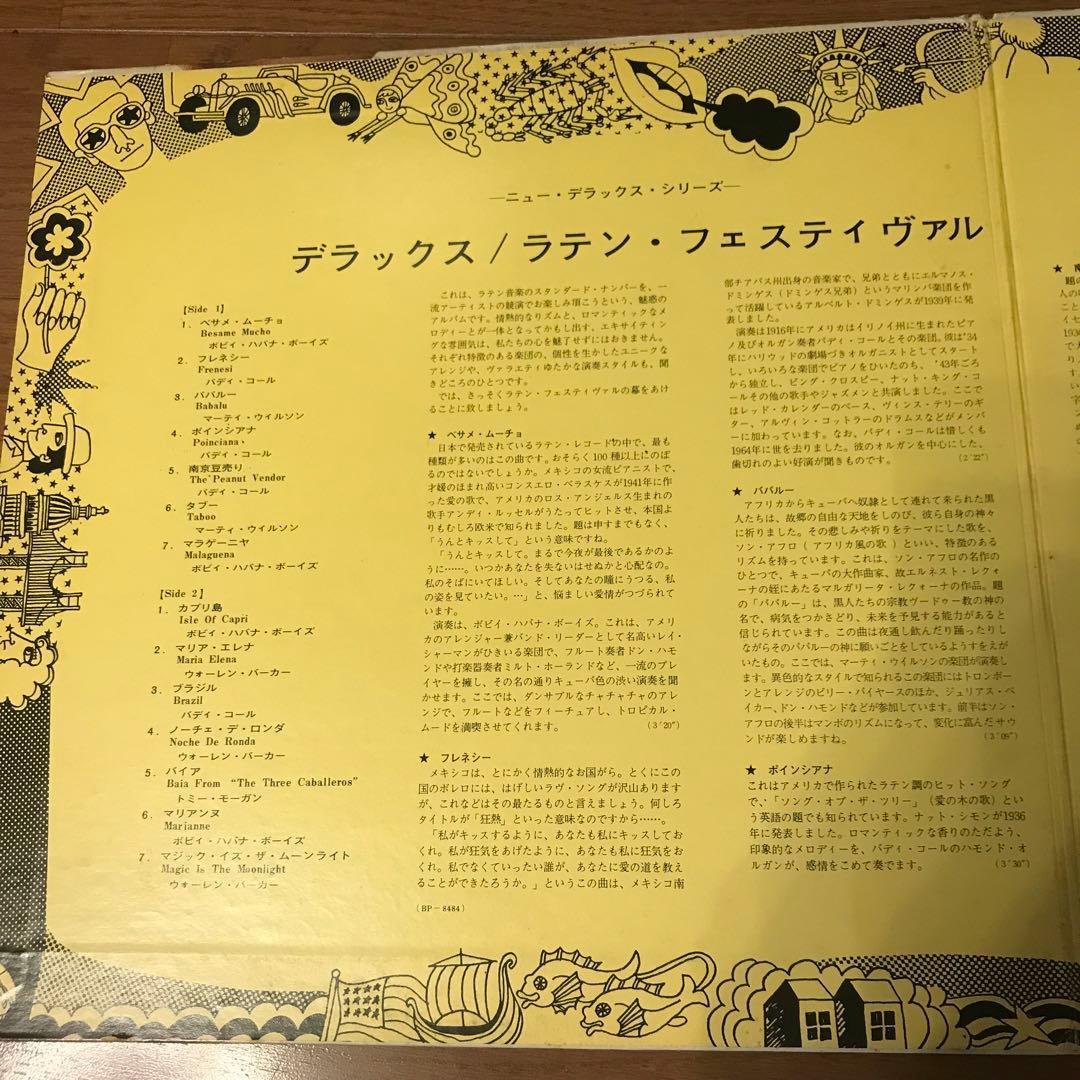 ―ニュー・デラックス・シリーズ―
デラックス/ラテン・フェスティヴァル
【Side 1】
1. ベサメ・ムーチョ
Besame Mucho
ボビイ・ハバナ・ボーイズ
2. フレネシー
Frenesi
バディ・コール
3. ババルー
Babalu
マーティ・ウイルソン
4. ポインシアナ
Poinciana
バディ・コール
5. 南京豆売り
The Peanut Vendor
バディ・コール
6. タブー
Taboo
マーティ・ウイルソン
7. マラゲーニヤ
Malaguena
ボビィ・ハバナ・ボーイズ
【Side 2】
1. カプリ島
Isle Of Capri
ボビィ・ハバナ・ボーイズ
2. マリア・エレナ
Maria Elena
ウォーレン・バーカー
3. ブラジル
Brazil
バディ・コール
4. ノーチェ・デ・ロンダ
Noche De Ronda
ウォーレン・バーカー
5. バイア
Baia From “The Three Caballeros”
トミー・モーガン
6. マリアンヌ
Marianne
ボビィ・ハバナ・ボーイズ
7. マジック・イズ・ザ・ムーンライト
Magic Is The Moonlight
ウォーレン・バーカー
これは、ラテン音楽のスタンダード・ナンバーを、一
流アーティストの競演でお楽しみ頂こうという、魅惑の
アルバムです。情熱的なリズムと、ロマンティックなメ
ロディーとが一体となってかもし出す、エキサイティン
グな雰囲気は、私たちの心を魅了せずにはおきません。
それぞれ特徴のある楽団の、個性を生かしたユニークな
アレンジや、ヴァラエティゆたかな演奏スタイルも、聞
きどころのひとつです。
では、さっそくラテン・フェスティヴァルの幕をあけ
ることに致しましょう。
★ ベサメ・ムーチョ
日本で発売されているラテン・レコードの中で、最も
種類が多いのはこの曲です。おそらく100種以上にのぼ
るのではないでしょうか。メキシコの女流ピアニストで、
才媛のほまれ高いコンスエロ・ベラスケスが1941年に作
った愛の歌で、アメリカのロス・アンジェルス生まれの
歌手アンディ・ルッセルがうたってヒットさせ、本国よ
りもむしろ欧米で知られました。題は申すまでもなく、
「うんとキッスして」という意味ですね。
「うんとキッスして。まるで今夜が最後であるかのよ
うに……。いつかあなたを失ないはせぬかと心配なの。
私のそばにいてほしい。そしてあなたの瞳にうつる、私
の姿を見ていたい。…」と、悩ましい愛情がつづられて
います。
演奏は、ボビイ・ハバナ・ボーイズ。これは、アメリ
カのアレンジャー兼バンド・リーダーとして名高いレイ・
シャーマンがひきいる楽団で、フルート奏者ドン・ハモ
ンドや打楽器奏者ミルト・ホーランドなど、一流のプレ
イヤーを擁し、その名の通りキューバ色の渋い演奏を聞
かせます。ここでは、ダンサブルなチャチャチャのアレ
ンジで、フルートなどをフィーチュアし、トロピカル・
ムードを満喫させてくれます。 (3′20″)
★ フレネシー
メキシコは、とにかく情熱的なお国がら。とくにこの
国のボレロには、はげしいラヴ・ソングが沢山あります
が、これなどはその最たるものと言えましょう。何しろ
タイトルが「狂熱」といった意味なのですから……。
「私がキッスするように、あなたも私にキッスしてお
くれ。私が狂気をあげたように、あなたも私に狂気をお
くれ。私でなくていったい誰が、あなたに愛の道を教え
ることができたろうか。」というこの曲は、メキシコ南
(BP－8484)
部チアパス州出身の音楽家で、兄弟とともにエルマノス・
ドミンゲス(ドミンゲス兄弟)というマリンバ楽団を作
って活躍しているアルベルト・ドミンゲスが1939年に発
表しました。
演奏は1916年にアメリカはイリノイ州に生まれたピア
ノ及びオルガン奏者バディ・コールとその楽団。彼は'34
年にハリウッドの劇場づきオルガニストとしてスタート
し、いろいろな楽団でピアノをひいたのち、'43年ごろ
から独立し、ビング・クロスビー、ナット・キング・コ
ールその他の歌手やジャズメンと共演しました。ここで
はレッド・カレンダーのベース、ヴィンス・テリーのギ
ター、アルヴィン・コットラーのドラムスなどがメンバ
ーに加わっています。なお、バディ・コールは惜しくも
1964年に世を去りました。彼のオルガンを中心にした、
歯切れのよい好演が聞きものです。 (2′22″)
★ ババルー
アフリカからキューバへ奴隷として連れて来られた黒
人たちは、故郷の自由な天地をしのび、彼ら自身の神々
に祈りました。その悲しみや祈りをテーマにした歌を、
ソン・アフロ(アフリカ風の歌)といい、特徴のある
リズムを持っています。これは、ソン・アフロの名作の
ひとつで、キューバの大作曲家、故エルネスト・レクォ
ーナの姪にあたるマルガリータ・レクォーナの作品。題
の「ババルー」は、黒人たちの宗教ヴードゥー教の神の
名で、病気をつかさどり、未来を予見する能力があると
信じられています。この曲は夜通し飲んだり踊ったりし
ながらそのババルーの神に願いごとをしているようすをえが
いたもの。ここでは、マーティ・ウイルソンの楽団が演奏し
ます。異色的なスタイルで知られるこの楽団にはトロンボー
ンとアレンジのビリー・バイヤースのほか、ジュリアス・ベ
イカー、ドン・ハモンドなどが参加しています。前半はソン・
アフロの後半はマンボのリズムになって、変化に富んだサウ
ンドが楽しめますね。 (3′09″)
★ ポインシアナ
これはアメリカで作られたラテン調のヒット・ソング
で、「ソング・オブ・ザ・ツリー」(愛の木の歌)とい
う英語の題でも知られています。ナット・シモンが1936
年に発表しました。ロマンティックな香りのただよう、
印象的なメロディーを、バディ・コールのハモンド・オ
ルガンが、感情をこめて奏でます。 (3′30″)